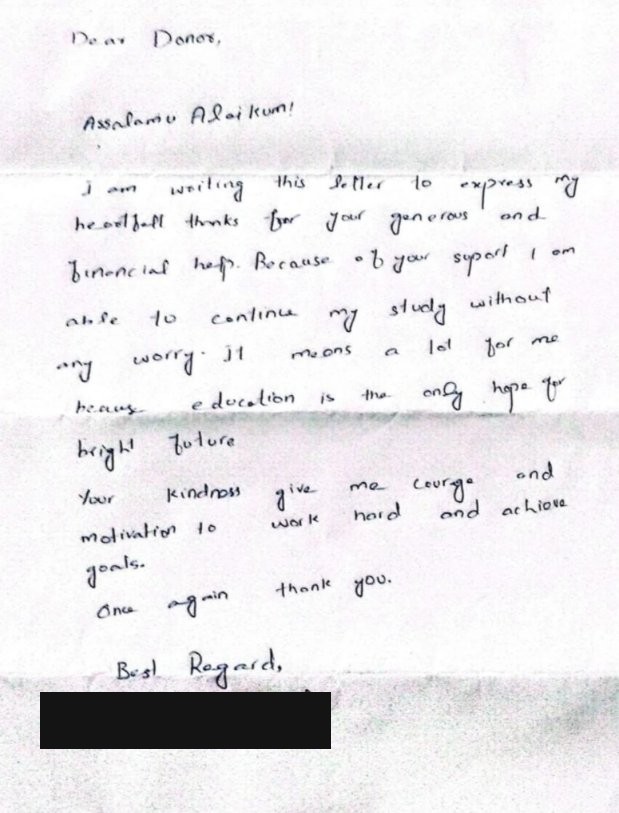 Dear Donor,
Assalamu Alaikum!
I am writing this letter to express my
heartfell thanks for your generous and
financial help. Because of your suport I am
able to continue my study without
any worry. It means a lot for me
beause education is the only hope for
bright future
Your kindness give me courge and
motivation to work hard and achieve
goals.
Once again thank you.
Best Regard,